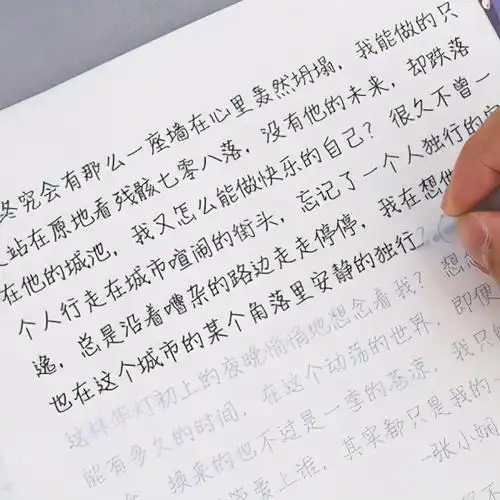 终究会有那么一座墙在心里轰然坍塌，我能做的只
站在原地看残骸七零八落，没有他的未来，却跌落
在他的城池，我又怎么能做快乐的自己？很久不曾一
个人行走在城市喧闹的街头，忘记了一个人独行的
逸，总是沿着嘈杂的路边走走停停，我在想他
也在这个城市的某个角落里安静的独行
这样华灯初上的夜晚悄悄地想念着我？想念
能有多久的时间，在这个动荡的世界，即便
换来的也不过是一季的苍凉，我只
爱上谁，其实都只是我的
-张小娴